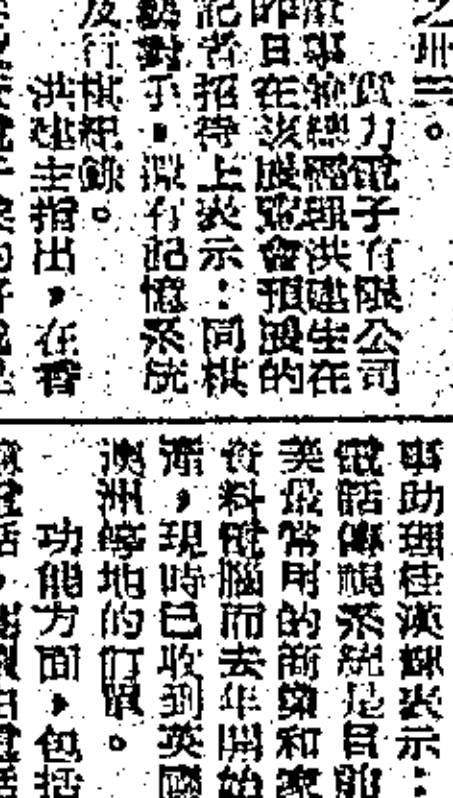 之卅三。
實力電子有限公司
事兼總經理洪建生在
昨日在該展覽會預展的
記者招待上表示：同棋
對手，有記憶系統
及行棋紀錄。
洪建生指出，在香
事助理桂漢輝表示：
電話傳視系統是目前
美最常用的商業和家
資料電腦而去年開始
，現時已收到英國
澳洲等地的訂單。
功能方面，包括